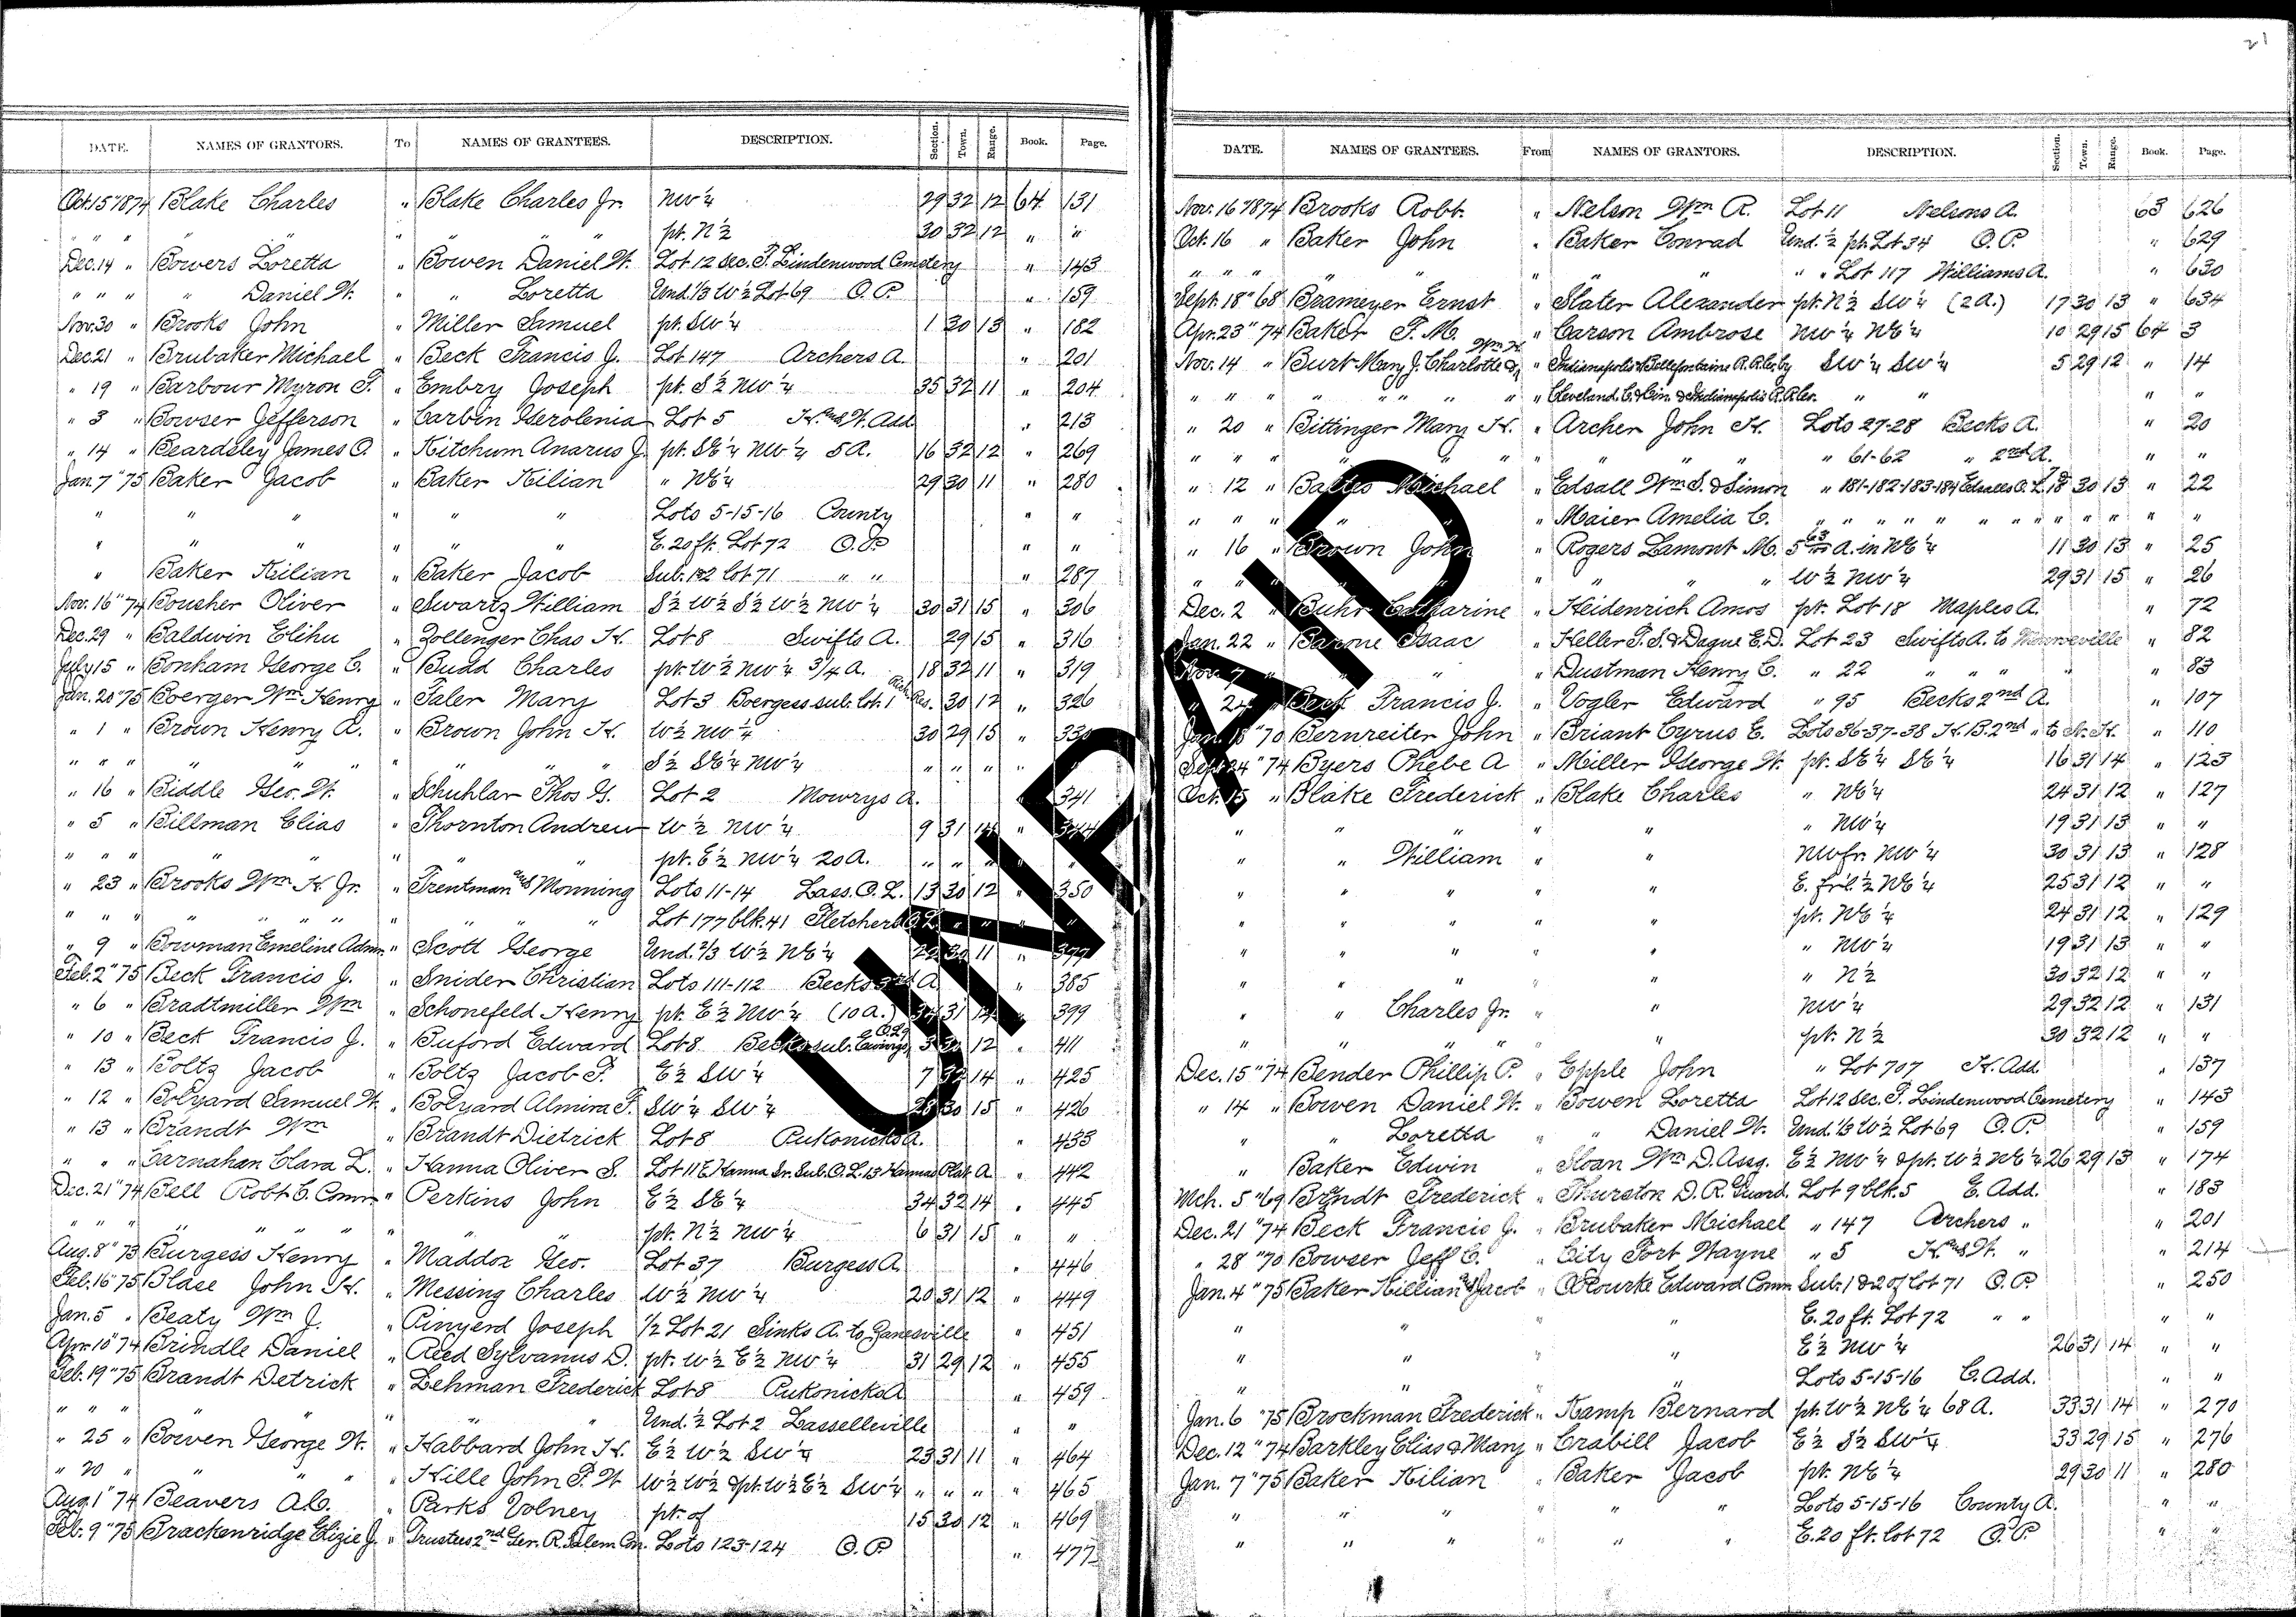 21
DATE. NAMES OF GRANTORS. To NAMES OF GRANTEES. DESCRIPTION. Section. Town. Range. Book. Page.
Oct. 15 " 1874 Blake Charles " Blake Charles Jr. NW ¼ 29 32 12 64 131
" " " " " " " " pt. N ½ 30 32 12 " "
Dec. 14 " Bowers Loretta " Bowen Daniel W. Lot 12 Sec. F. Lindenwood Cemetery " 143
" " " " Daniel W. " " Loretta Und. 1/3 W ½ Lot 69 O.P. " 159
Nov. 30 " Brooks John " Miller Samuel pt. SW ¼ 1 30 13 " 182
Dec. 21 " Brubaker Michael " Beck Francis J. Lot 147 Archers A. " 201
" 19 " Barbour Myron F. " Embry Joseph pt. S ½ NW ¼ 35 32 11 " 204
" 3 " Bowser Jefferson " Corbin Gerolenia Lot 5 H. and W. Add. " 213
" 14 " Beardsley James O. " Kitchum Anarus J. pt. SE ¼ NW ¼ 5 A. 16 32 12 " 269
Jan. 7 " 75 Baker Jacob " Baker Kilian " NE ¼ 29 30 11 " 280
" " " " " Lots 5-15-16 County " "
" " " " " E. 20 ft. Lot 72 O.P. " "
" Baker Kilian " Baker Jacob Sub. 1&2 lot 71 " " " 287
Nov. 16 " 74 Bousher Oliver " Swartz William S ½ W ½ S ½ W ½ NW ¼ 30 31 15 " 306
Dec. 29 " Baldwin Elihu " Zollenger Chas H. Lot 8 Swifts A. 29 15 " 316
July 15 " Bonham George C. " Budd Charles pt. W ½ NW ¼ 3/4 A. 18 32 11 " 319
Jan. 20 " 75 Boerger Wm Henry " Taler Mary Lot 3 Boergess sub. lot 1 Rich. Res. 30 12 " 326
" 1 " Brown Henry A. " Brown John H. W ½ NW ¼ 30 29 15 " 330
" " " " " " " " S ½ SE ¼ NW ¼ " " " "
" 16 " Biddle Geo. W. " Schuhlar Thos G. Lot 2 Mowrys A. 341
" 5 " Billman Elias " Thornton Andrew W ½ NW ¼ 9 31 14 " 344
" " " " " " " pt. E ½ NW ¼ 20 A. " " "
" 23 " Brooks Wm H. Jr. " Trentman and Monning Lots 11-14 Lass. O.L. 13 30 12 " 350
" " " " " " " " " Lot 177 blk. 41 Fletchers
" 9 " Bowman Emeline Admr. " Scott George Und. 2/3 W ½ NE ¼ 11 " 377
Feb. 2 " 75 Beck Francis J. " Snider Christian Lots 111-112 Becks A. " 385
" 6 " Bradtmiller Wm " Schonefeld Henry pt. E ½ NW ¼ (10 A.) 34 31 " 399
" 10 " Beck Francis J. " Buford Edward Lot 8 Becks sub. Ewings O.L. 12 " 411
" 13 " Boltz Jacob " Boltz Jacob F. E ½ SW ¼ 7 32 14 " 425
" 12 " Bolyard Samuel W. " Bolyard Almira F. SW ¼ SW ¼ 28 30 15 " 426
" 13 " Brandt Wm " Brandt Dietrick Lot 8 Pukonicks A. " 433
" " " Barnahan Clara L. " Hanna Oliver S. Lot 11 E Hanna Sr. Sub. O.L. 13 Hannas Plat A. " 442
Dec. 21 " 74 Bell Robt C. Comr. " Perkins John E ½ SE ¼ 34 32 14 " 445
" " " " " " " " " pt. N ½ NW ¼ 6 31 15 " "
Aug. 8 " 73 Burgess Henry " Maddox Geo. Lot 37 Burgess A. " 446
Feb. 16 " 75 Blase John H. " Messing Charles W ½ NW ¼ 20 31 12 " 449
Jan. 5 " Beaty Wm J. " Pinyerd Joseph 1/2 Lot 21 Sinks A. to Zanesville " 451
Apr. 10 " 74 Brindle Daniel " Reed Sylvanus D. pt. W ½ E ½ NW ¼ 31 29 12 " 455
Feb. 19 " 75 Brandt Detrick " Lehman Frederick Lot 8 Pukonicks A " 459
" " " " " " " Und. ½ Lot 2 Lasselleville " "
" 25 " Bowen George W. " Habbard John H. E ½ W ½ SW ¼ 23 31 11 " 464
" 20 " " " " " Hille John F. W W ½ W ½ & pt. W ½ E ½ SW ¼ " " " " 465
Aug. 1 " 74 Beavers A.C. " Parks Volney pt. of 15 30 12 " 469
Feb. 9 " 75 Brackenridge Elizie J. " Trustees 2nd Ger. R. Salem Con. Lots 123-124 O.P. " 477
DATE. NAMES OF GRANTEES. From NAMES OF GRANTORS. DESCRIPTION. Section. Town. Range. Book. Page.
Nov. 16 " 1874 Brooks Robt. " Nelson Wm R. Lot 11 Nelsons A. 63 626
Oct. 16 " Baker John " Baker Conrad Und. ½ pt. Lot 34 O.P. " 629
" " " " " " " " " " Lot 117 Williams A. " 630
Sept. 18 " 68 Brameyer Ernst " Slater Alexander pt. N ½ SW ¼ (2 A.) 17 30 13 " 634
Apr. 23 " 74 Baker F. M. " Carson Ambrose NW ¼ NE ¼ 10 29 15 64 3
Nov. 14 " Burt Mary J. Charlotte & Wm H. " Indianapolis & Bellefontaine R.R. Co. by SW ¼ SW ¼ 5 29 12 " 14
" " " " " " " " " Cleveland C. & Cin. & Indianapolis R.R. Co. " " " "
" 20 " Bittinger Mary H. " Archer John H. Lots 27-28 Becks A. " 20
" " " " " " " " " 61-62 " 2nd A. " "
" 12 " Baltes Michael " Edsall Wm S. & Simon " 181-182-183-184 Edsalls O.L. 18 30 13 " 22
" " " " " " Maier Amelia C. " " " " " " " " " " " "
" 16 " Brown John " Rogers Lamont M. 5 63/100 A. in NE ¼ 11 30 13 " 25
" " " " " " " W ½ NW ¼ 29 31 15 " 26
Dec. 2 " Buhr Catharine " Heidenrich Amos pt. Lot 18 Maples A. " 72
Jan. 22 " Barone Isaac " Heller F. S. & Dague E. D. Lot 23 Swifts A. to Monroeville " 82
Nov. 7 " " Dustman Henry C. " 22 " " " " 83
" 24 " Beck Francis J. " Vogler Edward " 95 Becks 2nd A. " 107
Jan. 18 " 70 Bernreiter John " Briant Cyrus E. Lots 36-37-38 H. B. 2nd " to N. H. " 110
Sept. 24 " 74 Byers Phebe A " Miller George W. pt. SE ¼ SE ¼ 16 31 14 " 123
Oct. 15 " Blake Frederick " Blake Charles " NE ¼ 24 31 12 " 127
" " " " " " NW ¼ 19 31 13 " "
" " William " " NW fr. NW ¼ 30 31 13 " 128
" " " " " E. frl. ½ NE ¼ 25 31 12 " "
" " " " " pt. NE ¼ 24 31 12 " 129
" " " " " " NW ¼ 19 31 13 " "
" " " " " " N ½ 30 32 12 " "
" " Charles Jr. " " NW ¼ 29 32 12 " 131
" " " " " " pt. N ½ 30 32 12 " "
Dec. 15 " 74 Bender Phillip P. " Epple John " Lot 707 H. Add. " 137
" 14 " Bowen Daniel W. " Bowen Loretta Lot 12 Sec. F. Lindenwood Cemetery " 143
" " Loretta " " Daniel W. Und. 1/3 W ½ Lot 69 O.P. " 159
" Baker Edwin " Sloan Wm D. Assg. E ½ NW ¼ & pt. W ½ NE ¼ 26 29 13 " 174
Mch. 5 " 69 Brndt Frederick " Thurston D. R. Guard. Lot 9 blk. 5 E. Add. " 183
Dec. 21 " 74 Beck Francis J. " Brubaker Michael " 147 Archers " " 201
" 28 " 70 Bowser Jeff C. " City Fort Wayne " 5 H. and W. " " 214
Jan. 4 " 75 Baker Killian and Jacob " O'Rourke Edward Comr. Sub. 1 & 2 of Lot 71 O.P. " 250
" " " " E. 20 ft. Lot 72 " " " "
" " " " E ½ NW ¼ 26 31 14 " "
" " " " Lots 5-15-16 C. Add. " "
Jan. 6 " 75 Brockman Frederick " Kamp Bernard pt. W ½ NE ¼ 68 A. 33 31 14 " 270
Dec. 12 " 74 Barkley Elias & Mary " Crabill Jacob E ½ S ½ SW ¼ 33 29 15 " 276
Jan. 7 " 75 Baker Kilian " Baker Jacob pt. NE ¼ 29 30 11 " 280
" " " " " " Lots 5-15-16 County A. " "
" " " " " E. 20 ft. lot 72 O.P. " "
UNPAID